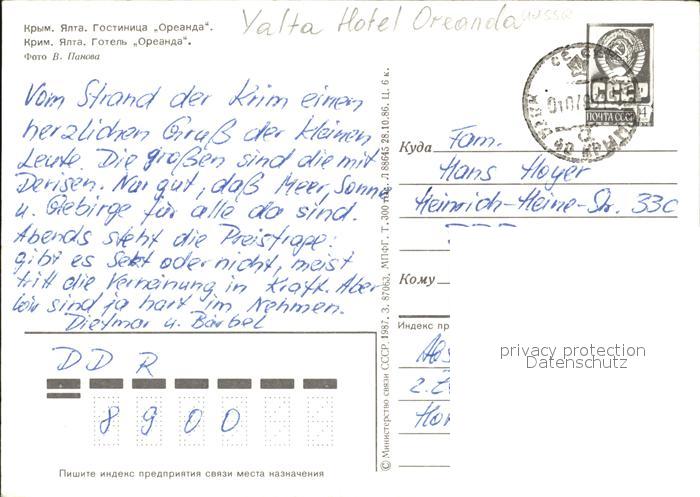 Крым. Ялта. Гостиница „Ореанда“.
Крим. Ялта. Готель „Ореанда“.
Фото В. Панова
Yalta Hotel Oreanda
Vom Strand der Krim einen
herzlichen Gruß der kleinen
Leute. Die großen sind die mit
Devisen. Nur gut, daß Meer, Sonne
u. Gebirge für alle da sind.
Abends steht die Preisfrage:
gibt es Sekt oder nicht, meist
tritt die Verneinung in Kraft. Aber
wir sind ja hart im Nehmen.
Dietmar u. Bärbel
DDR
8900
Пишите индекс предприятия связи места назначения
© Министерство связи СССР. 1987. З. 87063. МПФГ. Т. 300 Л 88645 28.10.86. Ц. 6 к.
СССР
ПОЧТА СССР 4
Куда Fam.
Hans Hoyer
Heinrich-Heine-Str. 33c
Кому
Индекс пр
privacy protection
Datenschutz